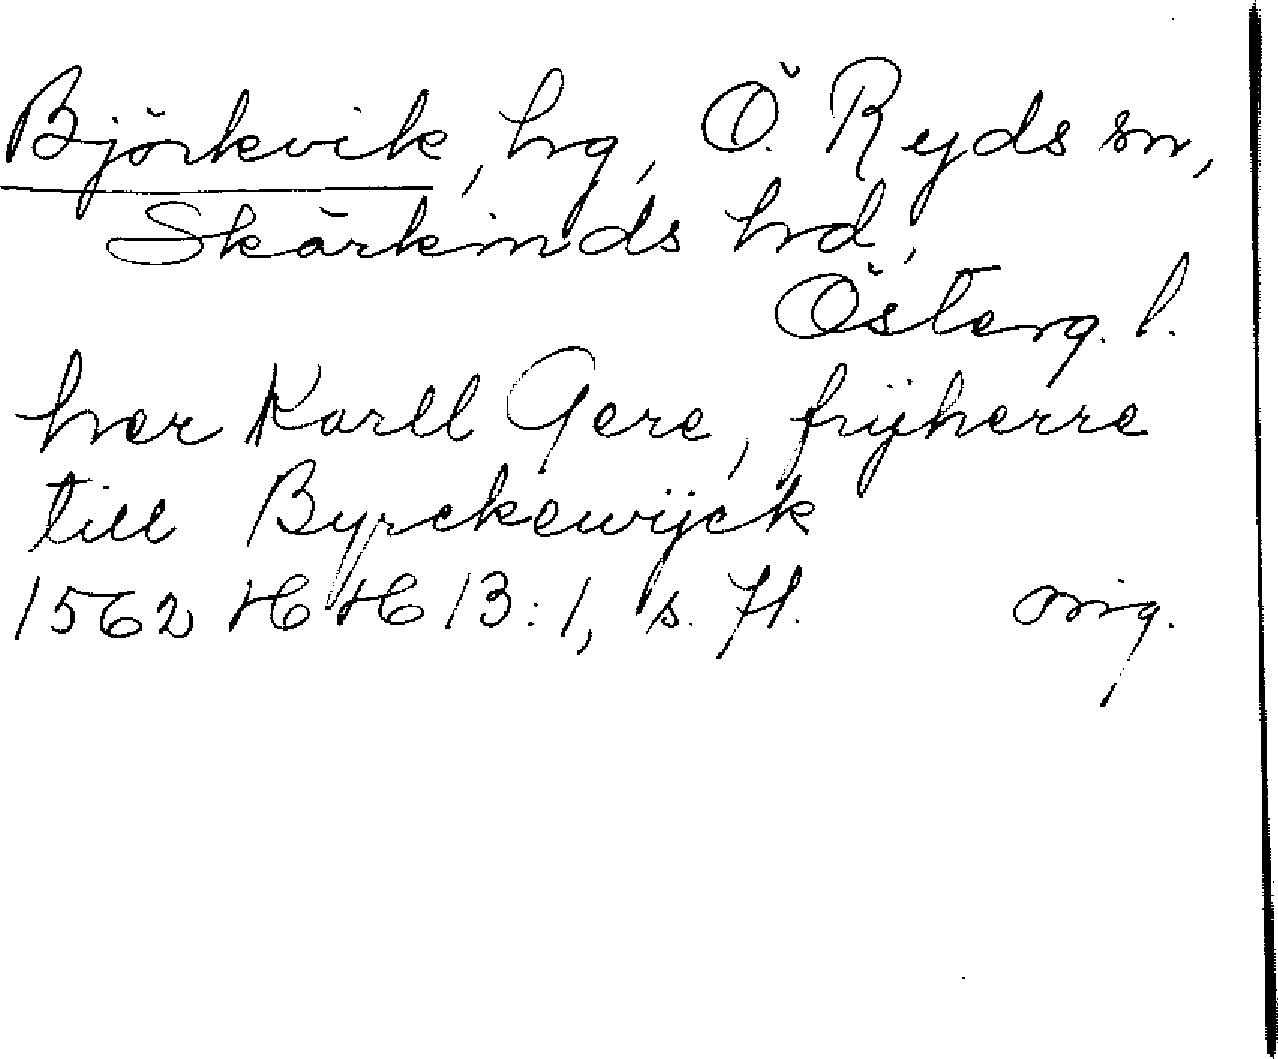 Björkvik, hg, Ö. Ryds sn,
Skärkinds hd,
Österg. l.
her Karll Gere, frijherre
till Byrckewijck
1562 HH 13:1, s. 71. orig.